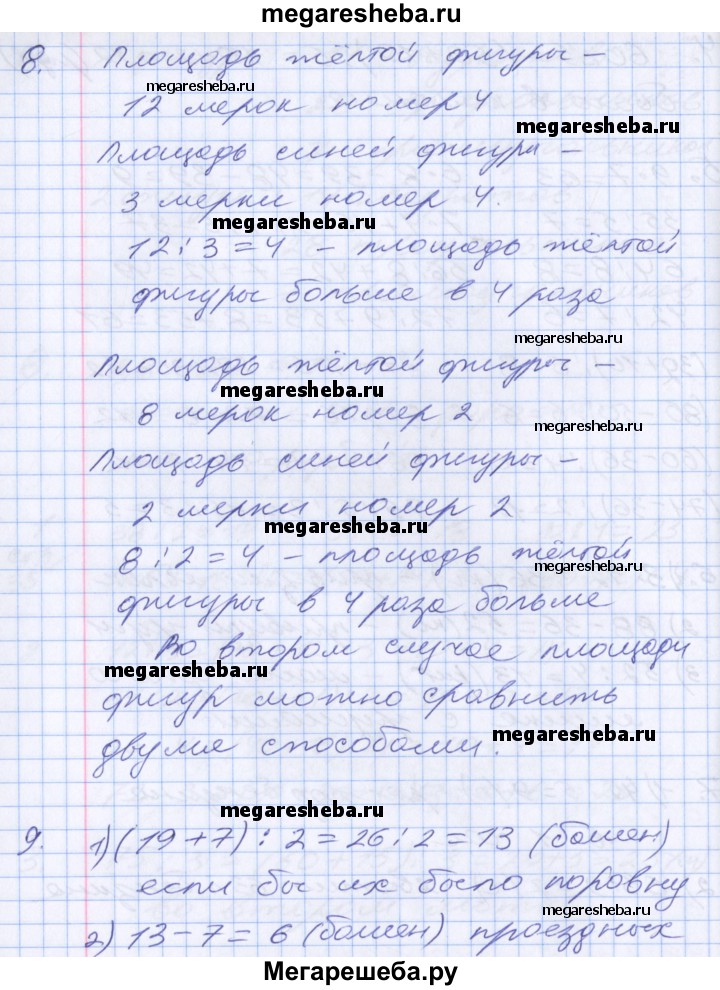 megaresheba.ru
8. Площадь жёлтой фигуры –
megaresheba.ru
12 мерок номер 4
megaresheba.ru
Площадь синей фигуры –
3 мерки номер 4.
megaresheba.ru
12 : 3 = 4 – площадь жёлтой
фигуры больше в 4 раза
megaresheba.ru
Площадь жёлтой фигуры –
megaresheba.ru
8 мерок номер 2
megaresheba.ru
Площадь синей фигуры –
2 мерки номер 2
megaresheba.ru
8 : 2 = 4 – площадь жёлтой
megaresheba.ru
фигуры в 4 раза больше
Во втором случае площади
megaresheba.ru
фигур можно сравнить
двумя способами.
megaresheba.ru
megaresheba.ru
9. 1) (19 + 7) : 2 = 26 : 2 = 13 (башен)
если бы их было поровну
megaresheba.ru
2) 13 – 7 = 6 (башен) проездных
Мегарешеба.ру